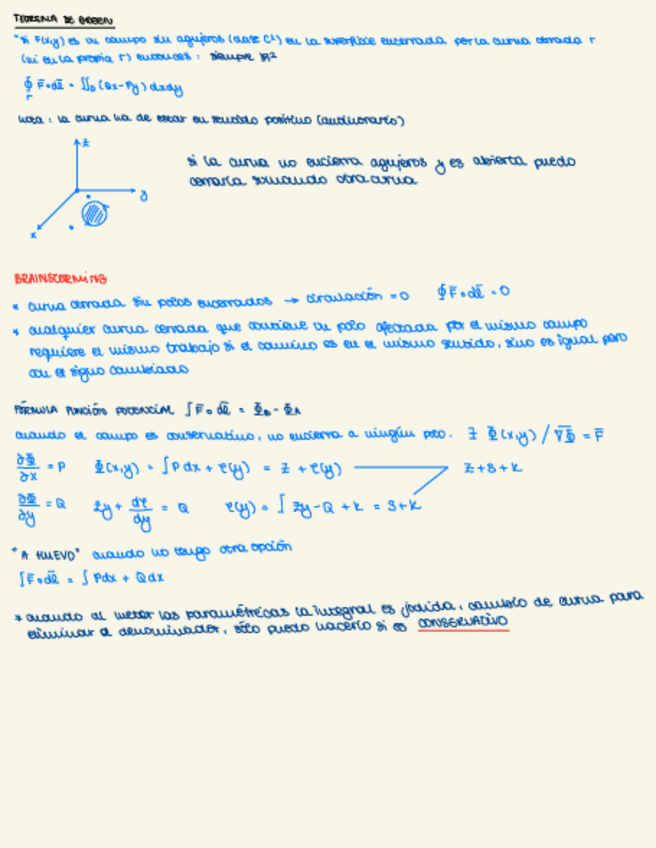 TEOREMA DE GREEN
"si F(x,y) es un campo sin agujeros (clase C¹) en la superficie encerrada por la curva cerrada Γ
(ni en la propia Γ) entonces: siempre ℝ²
∮Γ F̄∘dl̄ = ∬D (Qx-Py) dxdy
nota: la curva ha de estar en sentido positivo (antihorario)
z
y
x
si la curva no encierra agujeros y es abierta puedo
cerrarla sumando otra curva
BRAINSTORMING
* curva cerrada sin polos encerrados → circulación = 0 ∮F̄∘dl̄ = 0
* cualquier curva cerrada que contiene un polo afectada por el mismo campo
requiere el mismo trabajo si el camino es en el mismo sentido, sino es igual pero
con el signo cambiado
FÓRMULA FUNCIÓN POTENCIAL ∫F̄∘dl̄ = ΦB - ΦA
cuando el campo es conservativo, no encierra a ningún polo. ∃ Φ(x,y) / ∇Φ = F̄
∂Φ/∂x = P Φ(x,y) = ∫Pdx + φ(y) = z + φ(y) z+s+k
∂Φ/∂y = Q zy + dφ/dy = Q φ(y) = ∫ zy-Q + k = s+k
"A HUEVO" cuando no tengo otra opción
∫F̄∘dl̄ = ∫ Pdx + Qdx
* cuando al meter las paramétricas la integral es jodida, cambio de curva para
eliminar el denominador, sólo puedo hacerlo si es CONSERVATIVO